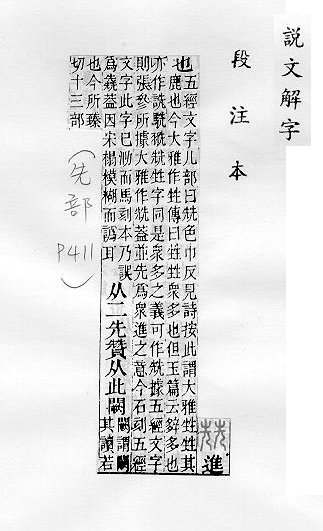 説文解字
段注本
進
也五經文字儿部曰兟色巾反見詩按此謂大雅甡甡其
鹿也今大雅作甡傳曰甡甡衆多也但玉篇云多也
亦作詵駪兟甡字同是衆多之義可作兟據五經文字
則張參所據大雅作兟蓋並先為衆進之意今石刻五經
文字此字已泐而馬刻本乃誤
為蓋因宋榻模糊而譌耳
从二先贊从此闕
闕謂闕
其讀若
也今所臻
切十三部
(先部
P411)